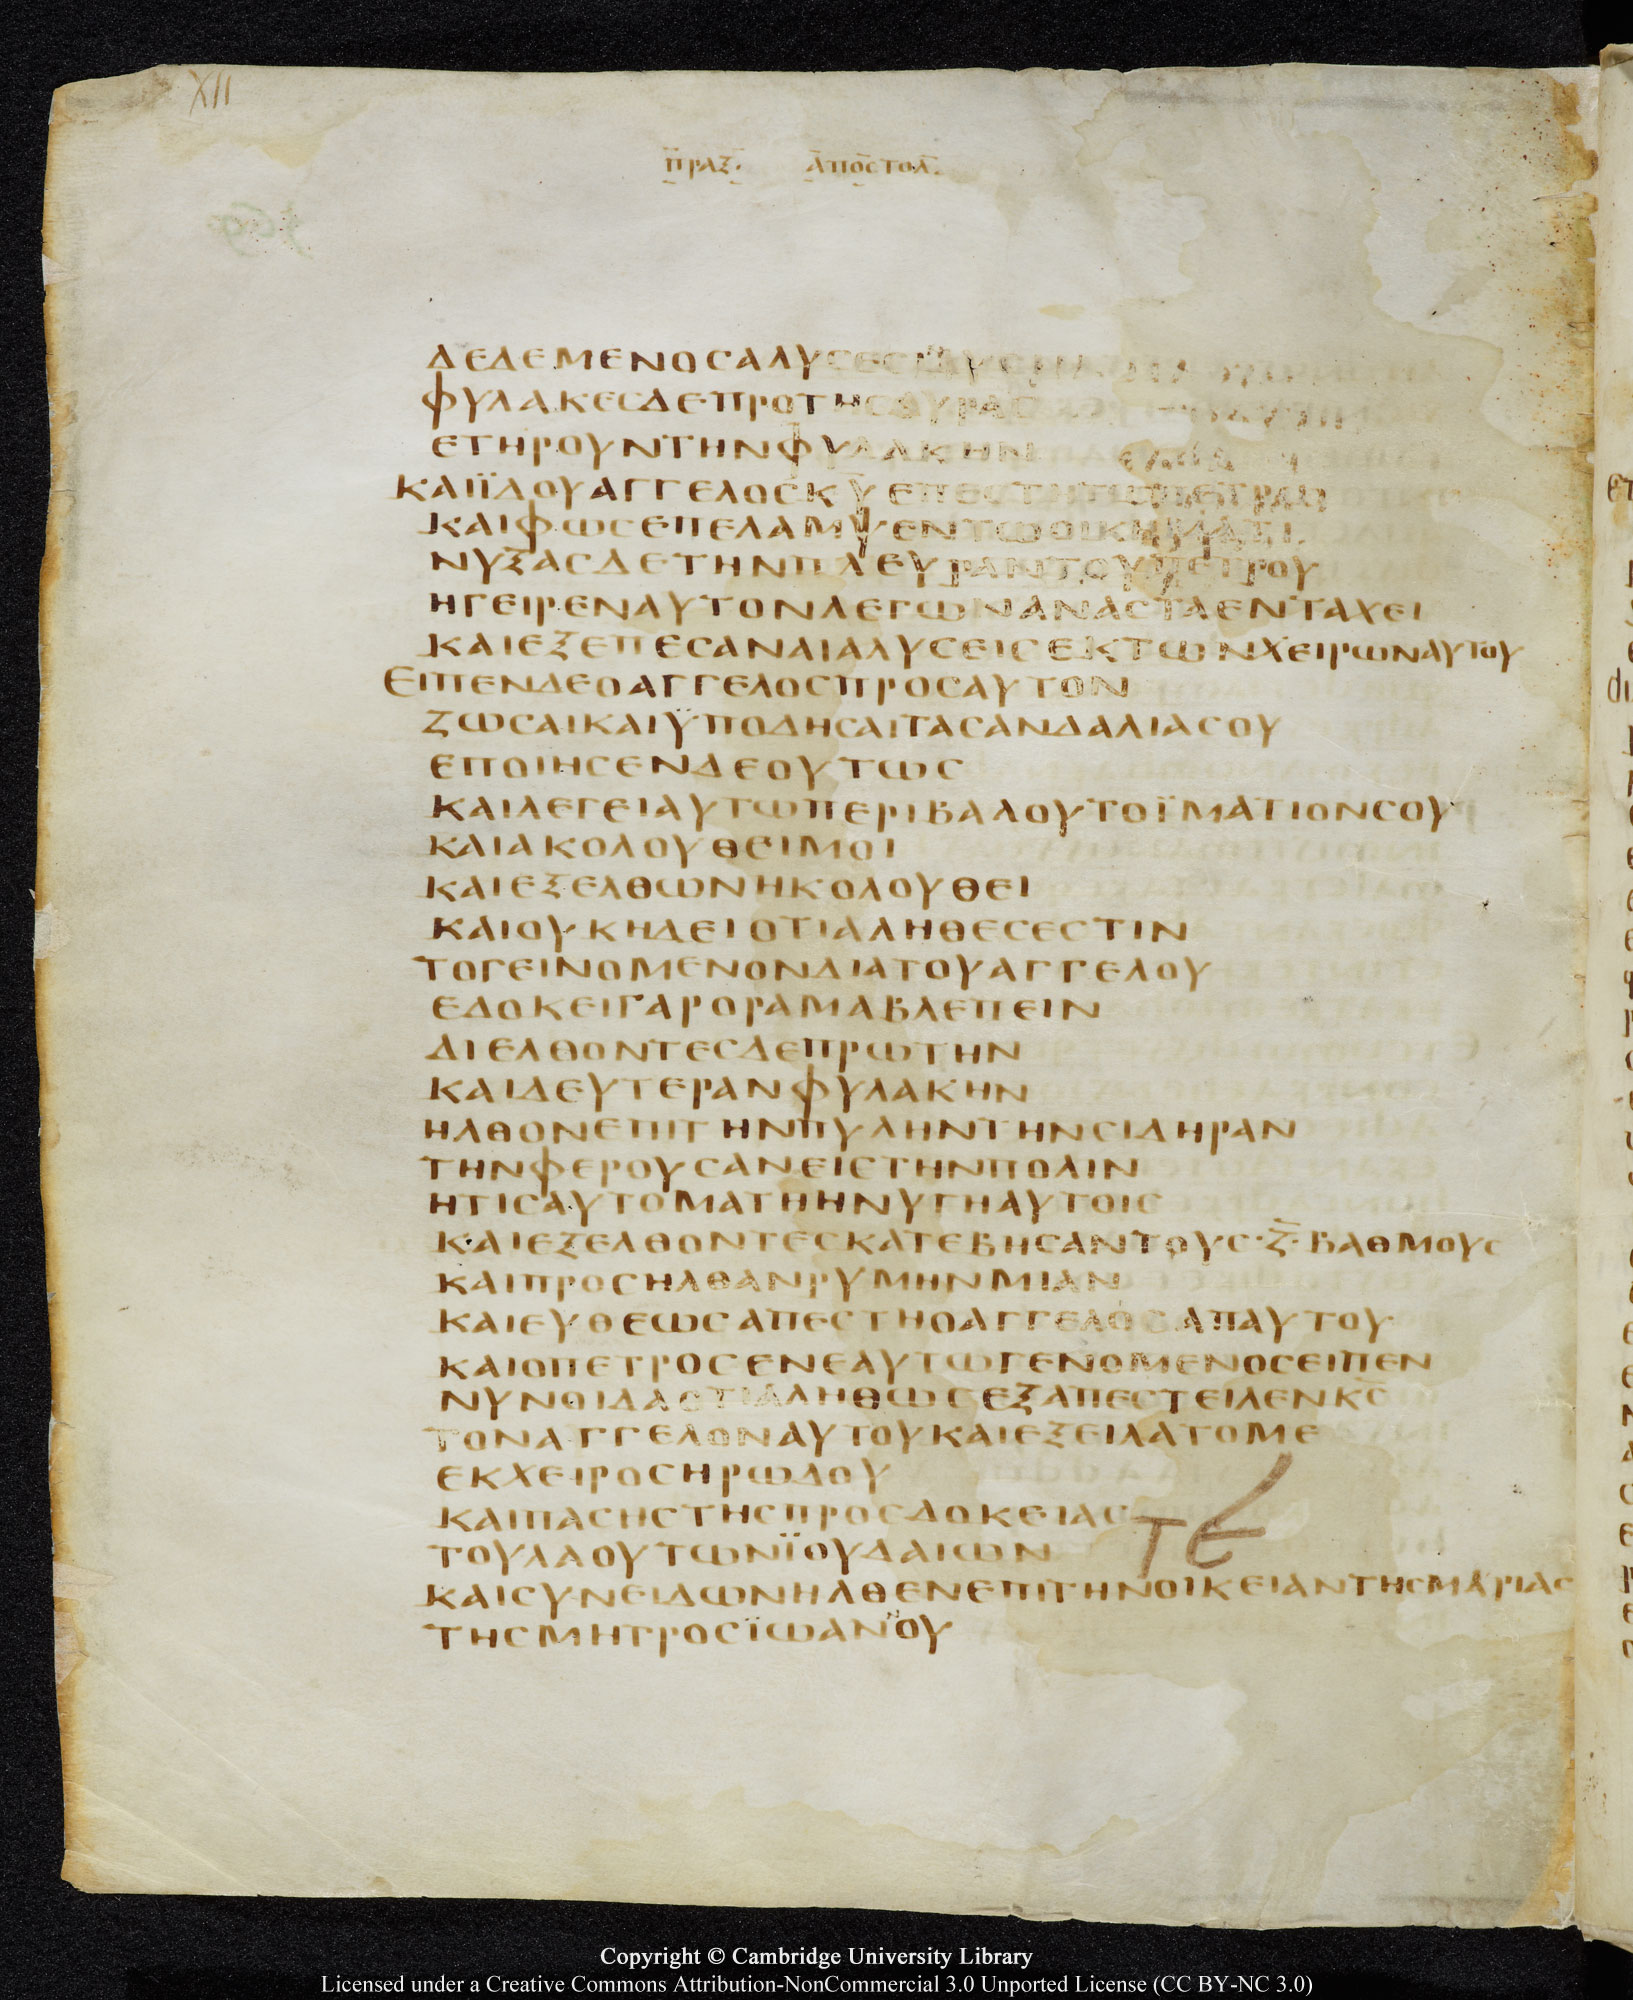 XII
ΠΡΑΞ. ΑΠΟСΤΟΛ.
ΔΕΔΕΜΕΝΟСΑΛΥСΕСΙ
ΦΥΛΑΚΕСΔΕΠΡΟΤΗСΘΥΡΑС
ΕΤΗΡΟΥΝΤΗΝΦΥΛΑΚΗΝ
ΚΑΙΪΔΟΥΑΓΓΕΛΟСΚΥΕΠΕСΤΗΤΩΠΕΤΡΩ
ΚΑΙΦΩСΕΠΕΛΑΜΨΕΝΤΩΟΙΚΗΜΑΤΙ
ΝΥΞΑСΔΕΤΗΝΠΛΕΥΡΑΝΤΟΥΠΕΤΡΟΥ
ΗΓΕΙΡΕΝΑΥΤΟΝΛΕΓΩΝΑΝΑСΤΑΕΝΤΑΧΕΙ
ΚΑΙΕΞΕΠΕСΑΝΑΙΑΛΥСΕΙСΕΚΤΩΝΧΕΙΡΩΝΑΥΤΟΥ
ΕΙΠΕΝΔΕΟΑΓΓΕΛΟСΠΡΟСΑΥΤΟΝ
ΖΩСΑΙΚΑΙΫΠΟΔΗСΑΙΤΑСΑΝΔΑΛΙΑСΟΥ
ΕΠΟΙΗСΕΝΔΕΟΥΤΩС
ΚΑΙΛΕΓΕΙΑΥΤΩΠΕΡΙΒΑΛΟΥΤΟΪΜΑΤΙΟΝСΟΥ
ΚΑΙΑΚΟΛΟΥΘΕΙΜΟΙ
ΚΑΙΕΞΕΛΘΩΝΗΚΟΛΟΥΘΕΙ
ΚΑΙΟΥΚΗΔΕΙΟΤΙΑΛΗΘΕСΕСΤΙΝ
ΤΟΓΕΙΝΟΜΕΝΟΝΔΙΑΤΟΥΑΓΓΕΛΟΥ
ΕΔΟΚΕΙΓΑΡΟΡΑΜΑΒΛΕΠΕΙΝ
ΔΙΕΛΘΟΝΤΕСΔΕΠΡΩΤΗΝ
ΚΑΙΔΕΥΤΕΡΑΝΦΥΛΑΚΗΝ
ΗΛΘΟΝΕΠΙΤΗΝΠΥΛΗΝΤΗΝСΙΔΗΡΑΝ
ΤΗΝΦΕΡΟΥСΑΝΕΙСΤΗΝΠΟΛΙΝ
ΗΤΙСΑΥΤΟΜΑΤΗΗΝΥΓΗΑΥΤΟΙС
ΚΑΙΕΞΕΛΘΟΝΤΕСΚΑΤΕΒΗСΑΝΤΟΥС·Ζ̅·ΒΑΘΜΟΥС
ΚΑΙΠΡΟСΗΛΘΑΝΡΥΜΗΝΜΙΑΝ
ΚΑΙΕΥΘΕΩСΑΠΕСΤΗΟΑΓΓΕΛΟСΑΠΑΥΤΟΥ
ΚΑΙΟΠΕΤΡΟСΕΝΕΑΥΤΩΓΕΝΟΜΕΝΟСΕΙΠΕΝ
ΝΥΝΟΙΔΑΟΤΙΑΛΗΘΩСΕΞΑΠΕСΤΕΙΛΕΝΚС
ΤΟΝΑΓΓΕΛΟΝΑΥΤΟΥΚΑΙΕΞΕΙΛΑΤΟΜΕ
ΕΚΧΕΙΡΟСΗΡΩΔΟΥ
ΚΑΙΠΑСΗСΤΗСΠΡΟСΔΟΚΕΙΑС
ΤΟΥΛΑΟΥΤΩΝΪΟΥΔΑΙΩΝ ΤΕ
ΚΑΙСΥΝΕΙΔΩΝΗΛΘΕΝΕΠΙΤΗΝΟΙΚΕΙΑΝΤΗСΜΑΡΙΑС
ΤΗСΜΗΤΡΟСΪΩΑΝΟΥ
Copyright © Cambridge University Library
Licensed under a Creative Commons Attribution-NonCommercial 3.0 Unported License (CC BY-NC 3.0)